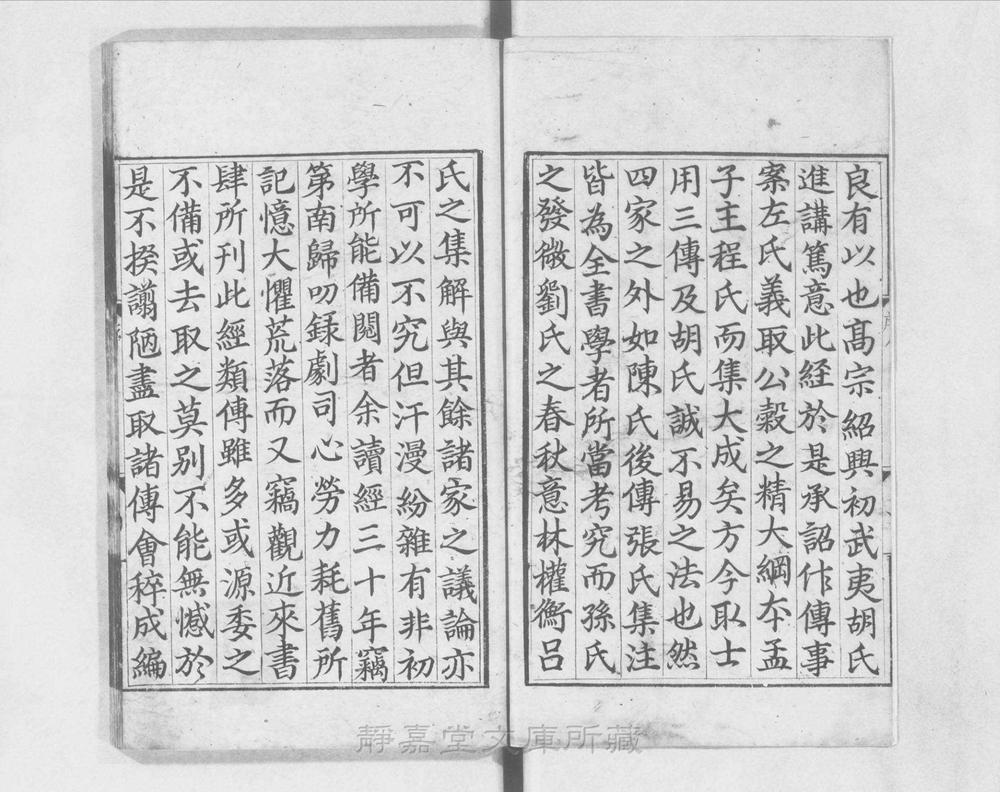 良有以也髙宗紹興初武夷胡氏
進講篤意此経於是承詔作傳事
案左氏義取公縠之精大綱本孟
子主程氏而集大成矣方今取士
用三傳及胡氏誠不易之法也然
四家之外如陳氏後傳張氏集注
皆為全書學者所當考究而孫氏
之發微劉氏之春秋意林權衡吕
氏之集解與其餘諸家之議論亦
不可以不究但汗漫紛雜有非初
學所能備閱者余讀經三十年竊
第南歸叨録劇司心勞力耗舊所
記憶大懼荒落而又竊觀近來書
肆所刊此經類傳雖多或源委之
不備或去取之莫别不能無憾於
是不揆謭陋盡取諸傳會稡成編
靜嘉堂文庫所藏